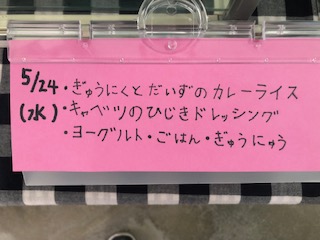 5/24・ぎゅうにくとだいずのカレーライス
(水)・キャベツのひじきドレッシング
・ヨーグルト・ごはん・ぎゅうにゅう